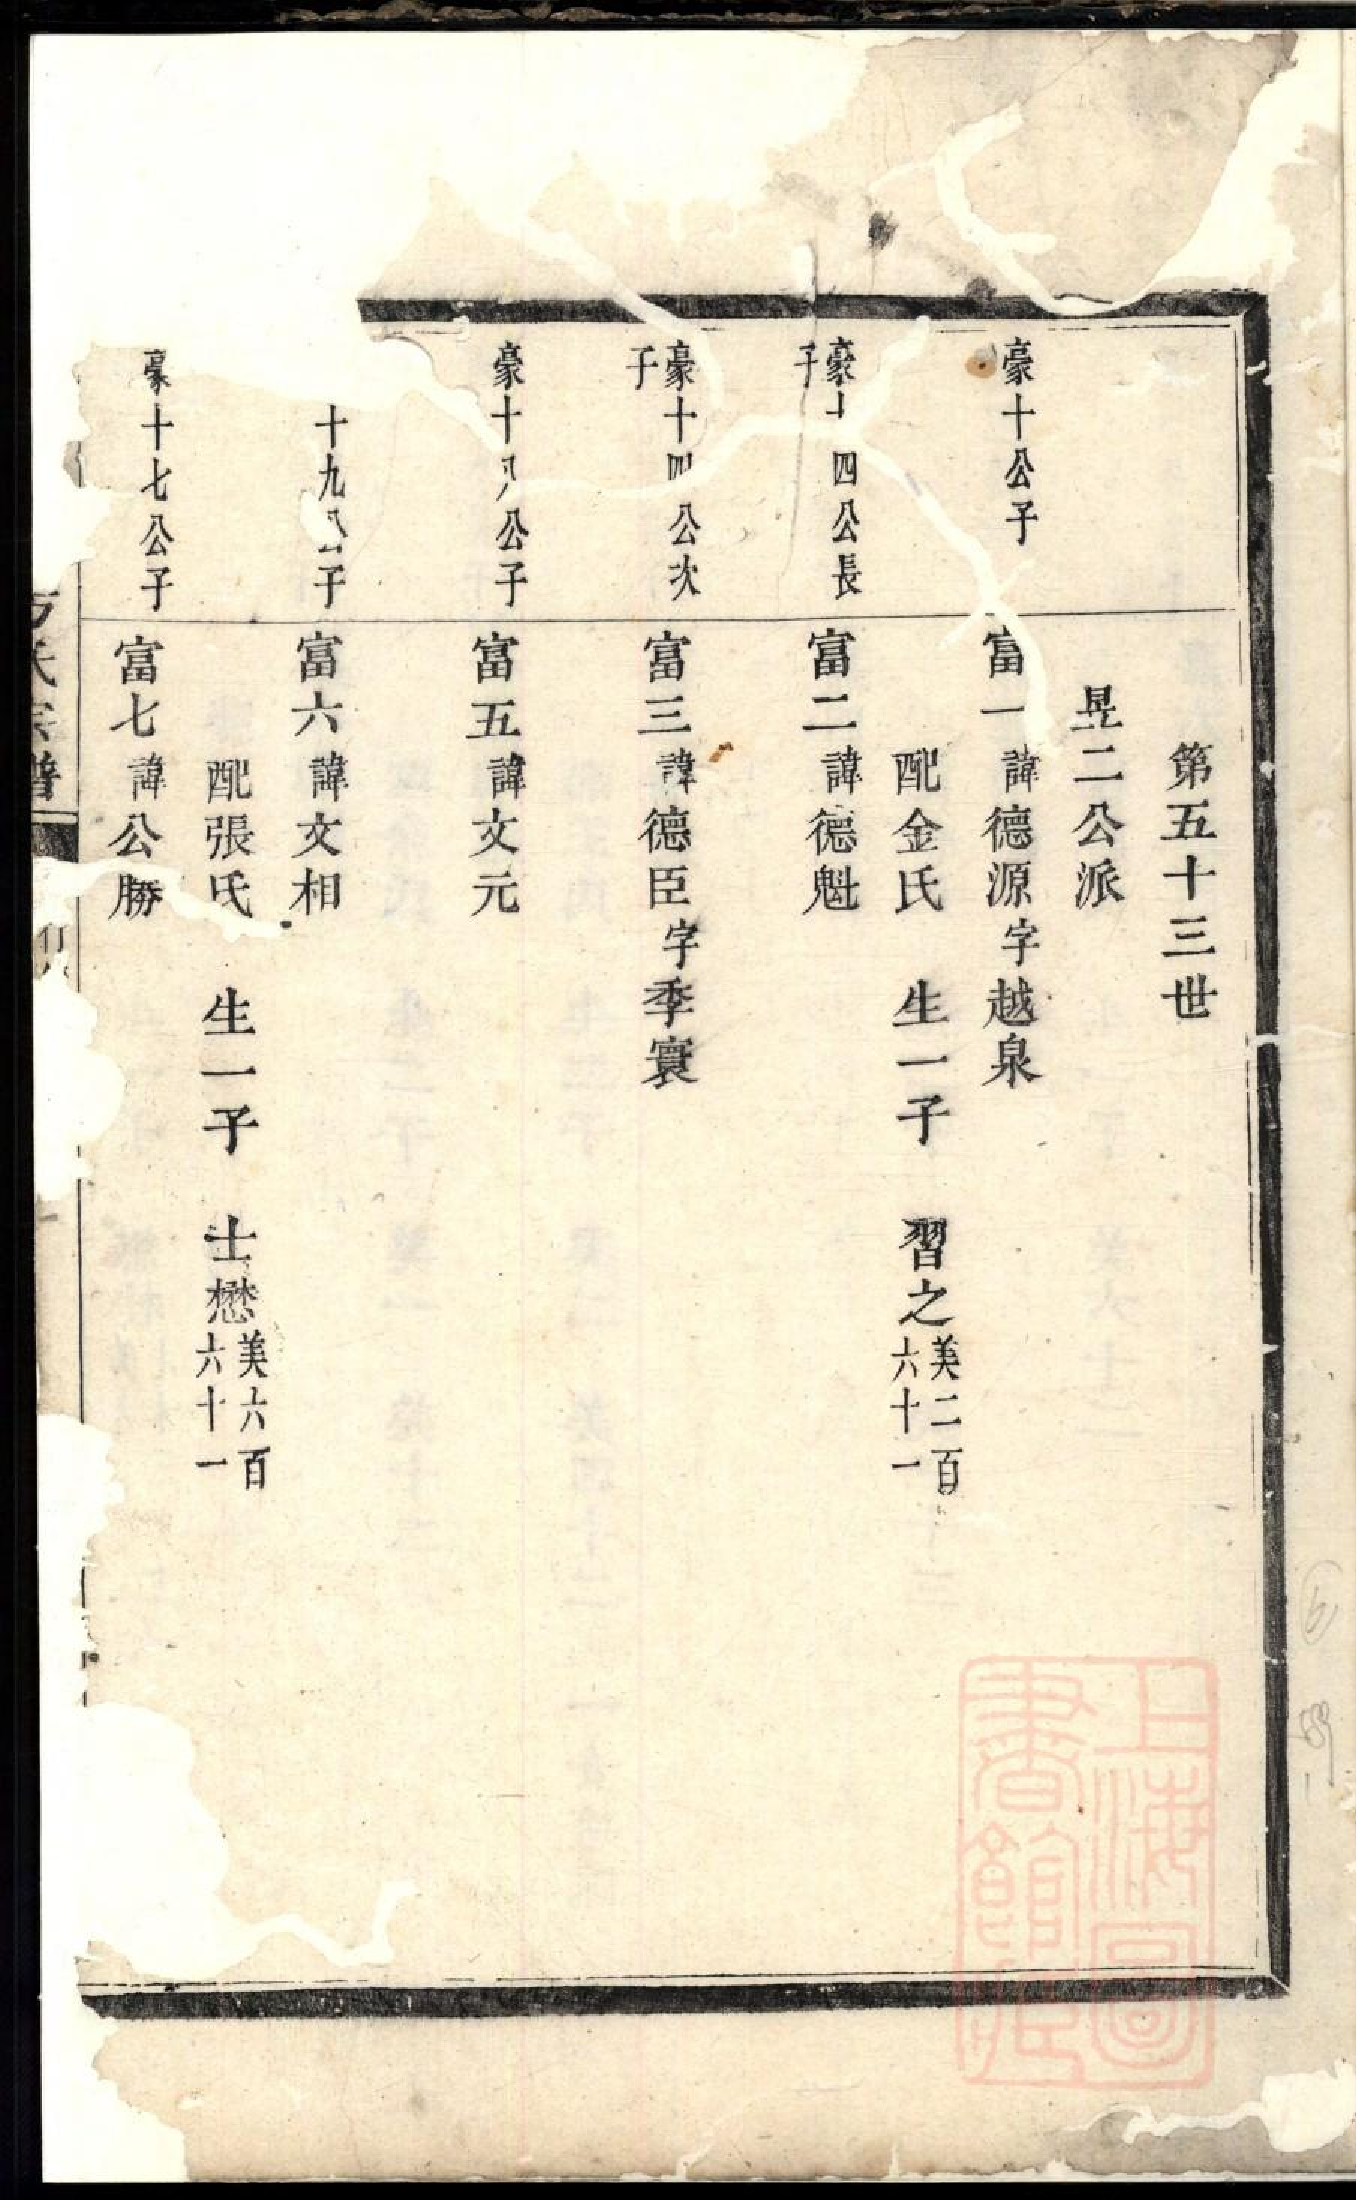 第五十三世
昱二公派
豪十公子
富一諱德源字越泉
配金氏 生一子 習之美二百六十一
豪十四公長子
富二諱德魁
豪十四公次子
富三諱德臣字季寰
豪十八公子
富五諱文元
十九公子
富六諱文相
配張氏 生一子 士懋美六百六十一
豪十七公子
富七諱公勝
方氏宗譜
上海圖書館藏